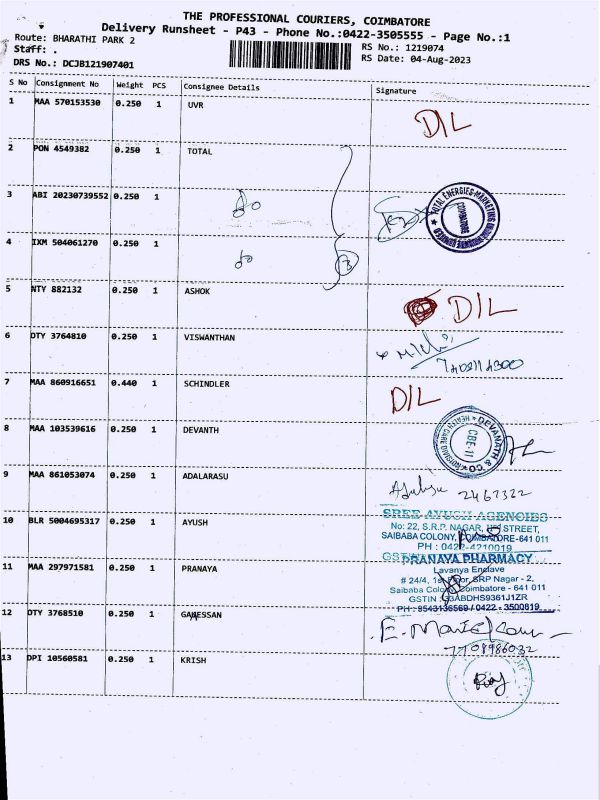 THE PROFESSIONAL COURIERS, COIMBATORE
Delivery Runsheet - P43 - Phone No.:0422-3505555 - Page No.:1
Route: BHARATHI PARK 2
RS No.: 1219074
Staff: .
RS Date: 04-Aug-2023
DRS No.: DCJB121907401
S No Consignment No Weight PCS Consignee Details Signature
1 MAA 570153530 0.250 1 UVR
DIL
2 PON 4549382 0.250 1 TOTAL
3 ABI 20230739552 0.250 1
COIMBATORE
4 IXM 504061270 0.250 1
5 NTY 882132 0.250 1 ASHOK
DIL
6 DTY 3764810 0.250 1 VISWANTHAN
7 MAA 860916651 0.440 1 SCHINDLER
DIL
8 MAA 103539616 0.250 1 DEVANTH
DEVANATH & CO
CBE-11
9 MAA 861053074 0.250 1 ADALARASU
2467322
10 BLR 5004695317 0.250 1 AYUSH
SREE AYUSH AGENCIES
No: 22, S.R.P. NAGAR, STREET,
SAIBABA COLONY, COIMBATORE-641 011
PH : 0422-4210019
11 MAA 297971581 0.250 1 PRANAYA
PRANAYA PHARMACY
Lavanya Enclave
# 24/4, 1st Floor, SRP Nagar - 2,
Saibaba Colony, Coimbatore - 641 011
PH : 8543136569 / 0422 - 3500619
12 DTY 3768510 0.250 1 GANESSAN
7708986032
13 DPI 10560581 0.250 1 KRISH